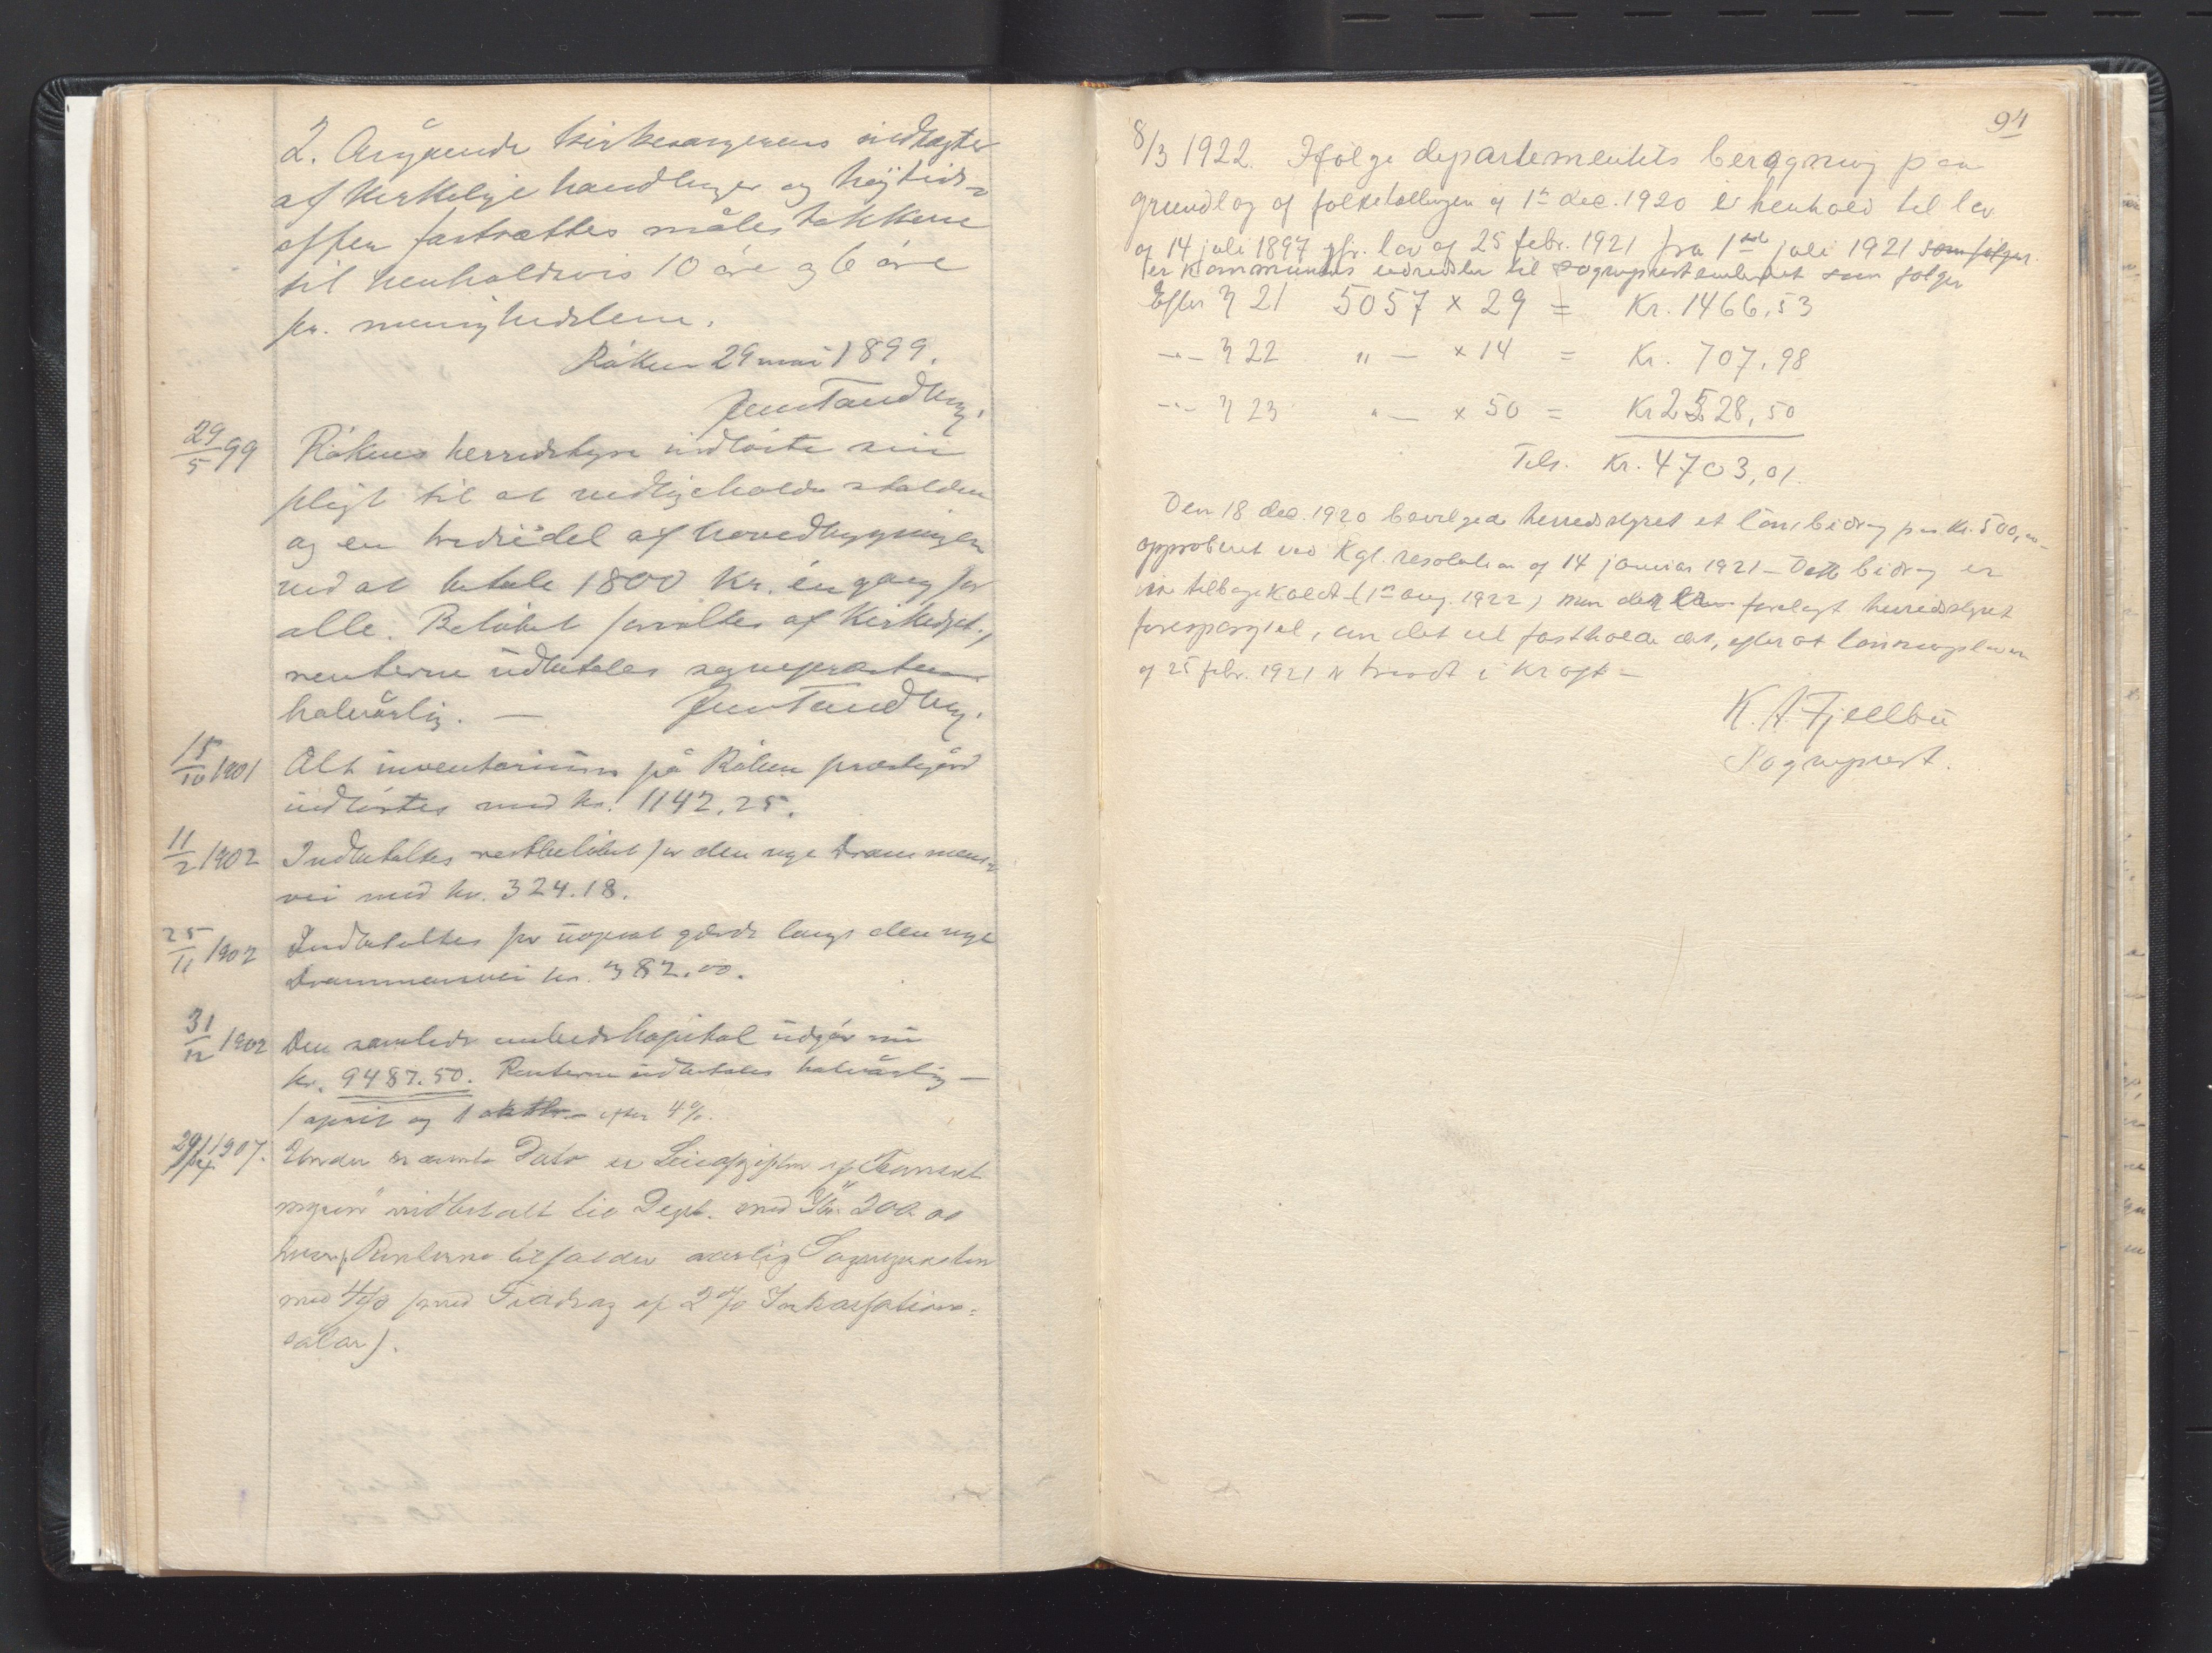 2. Angående kirkesangerens indtægter
af kirkelige handlinger og høitids-
offer fastsættes målestokkene
til henholdsvis 10 øre og 6 øre
pr. menighedslem.
Røken 29 mai 1899.
Jens Tandberg.
29/5 99 Røkens herredstyre indløste sin
pligt til at vedligeholde stalden
og en trediedel af hovedbygningen
ved at betale 1800 kr. én gang for
alle. Beløbet forvaltes af Kirkedept.,
renterne udbetales sognepræsten
halvårlig. — Jens Tandberg.
15/10 1901 Alt inventarium på Røken præstegård
indløstes med kr. 1142.25.
11/2 1902 Indbetaltes restbeløbet for den nye Drammens-
vei med kr. 324.18.
25/11 1902 Indbetaltes for gjerde langs den nye
Drammensvei kr. 382.00.
31/12 1902 Den samlede embedskapital udgør nu
kr. 9487.50. Renterne udbetales halvårlig —
1 april og 1 oktbr. — efter 4%.
1907. Under nævnte Dato er af
indbetalt til Dept. med Kr. 200.00
hvoraf Renterne tilfalder aarlig Sognepresten
med 4% (med Fradrag af 2% Inkassations-
salær).
94
8/3 1922. Ifølge departementets beregning paa
grundlag af folketællingen af 1ste dec. 1920 i henhold til lov
af 14 juli 1897 jfr. lov af 25 febr. 1921 fra 1ste juli 1921 som følger.
er kommunens udredsler til sogneprestembedet som følger
Efter § 21 5057 × 29 = Kr. 1466,53
—"— § 22 " — × 14 = Kr. 707,98
—"— § 23 " — × 50 = Kr 2528,50
Tils. Kr. 4703,01.
Den 18 dec. 1920 bevilgede herredstyret et lønsbidrag paa kr. 500,00
approberet ved Kgl. resolution af 14 januar 1921 — Dette bidrag er
ikke tilbagekaldt (1ste aug. 1922) men der forelagt herredstyret
forespørgsel, om det vil fastholde det, efter at lønningsloven
af 25 febr. 1921 er traadt i kraft —
K. A. Fjellbu
Sogneprest.